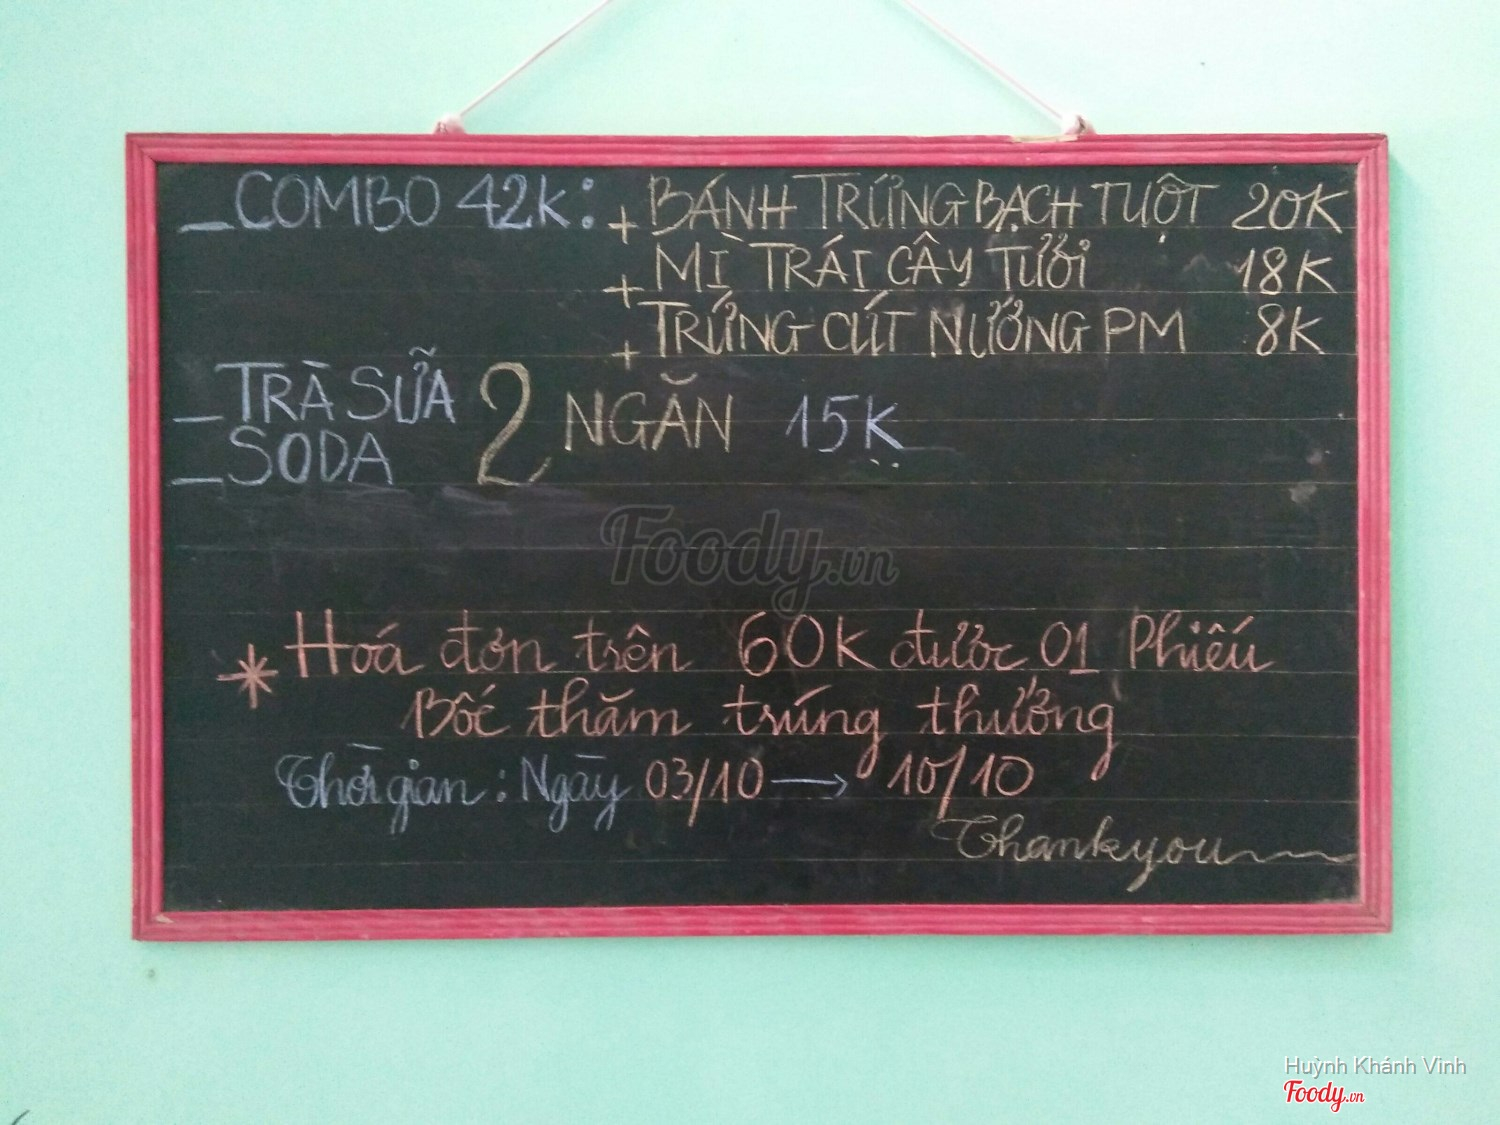 _ COMBO 42K: + BÁNH TRỨNG BẠCH TUỘT 20K
+ MÌ TRÁI CÂY TƯƠI 18K
+ TRỨNG CÚT NƯỚNG PM 8K
_ TRÀ SỮA 2 NGĂN 15K
_ SODA
Foody.vn
* Hoá đơn trên 60K được 01 Phiếu
Bốc thăm trúng thưởng
Thời gian: Ngày 03/10 → 10/10
Thankyou
Huỳnh Khánh Vinh
Foody.vn